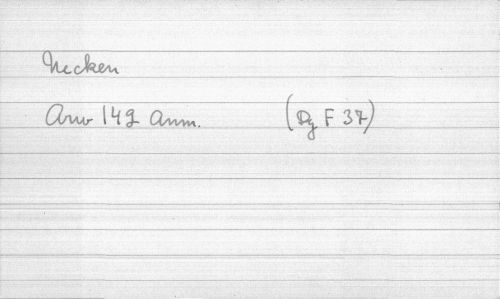 Necken
Arw 149 Anm. (Dg F 37)